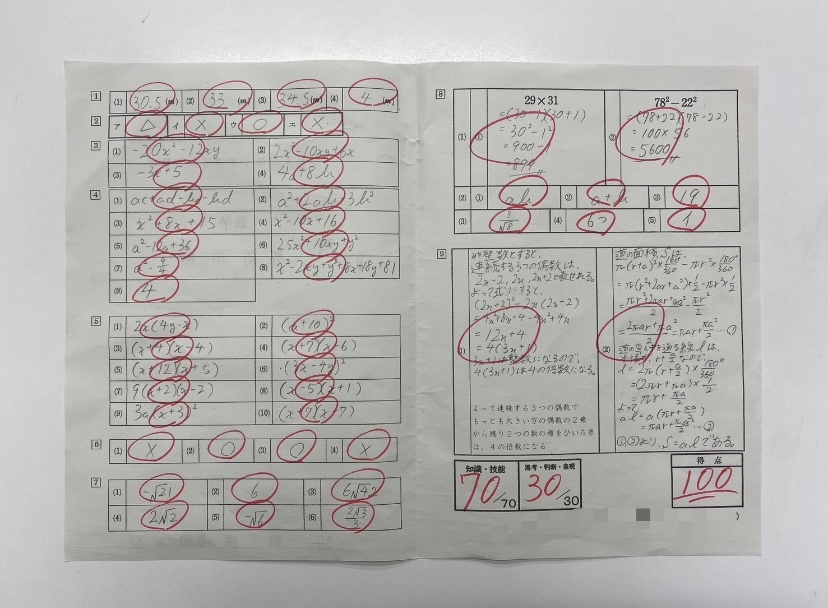 1
(1) 30.5 (m) (2) 33 (m) (3) 34.5 (m) (4) 4
2
ア △ イ × ウ ○ エ ×
3
(1) -20x²-12xy (2) 2x²-10xy+6x
(3) -3x+5 (4) 4a+8b
4
(1) ac+ad-bc-bd (2) a²+2ab-3b²
(3) x²+8x+15 (4) x²-10x+16
(5) a²-12a+36 (6) 25x²+10xy+y²
(7) (8) x²-2xy+y²+18x-18y+81
(9) 4
5
(1) 2x(4y-x) (2) (a+10)²
(3) (x+4)(x-4) (4) (x+7)(x-6)
(5) (x+12)(x+5) (6) ²
(7) 9(x+2)(x-2) (8) (x-5)(x+1)
(9) 3a(x+3)² (10) (x+7)(x-7)
6
(1) × (2) ○ (3) ○ (4) ×
7
(1) -√21 (2) 6 (3) 6√42
(4) 2√2 (5) -√6 (6) 2√3/3
8
29×31
(1) ①
=(30-1)(30+1)
=30²-1²
=900-1
=899
78²-22²
②
=(78+22)(78-22)
=100×56
=5600
(2) ① ab ② a+b ③ 19
(3) (4) (5) 1
9
(1)
nを整数とすると、
連続する3つの偶数は、
2n-2, 2n, 2n+2と表せれる。
よって式にすると、
(2n+2)²-2n(2n-2)
=4n²+8n+4-4n²+4n
=12n+4
=4(3n+1)
3n+1は整数になるので、
4(3n+1)は4の倍数になる。
よって連続する3つの偶数で
もっとも大きい方の偶数の2乗
から残り2つの数の積をひいた差
は、4の倍数になる
(2)
道の面積Sは
π(r+a)²×180°/360-πr²×180°/360
=π(r²+2ar+a²)×1/2-πr²×1/2
=πr²+2πar+πa²/2-πr²/2
=2πar+πa²/2=πar+πa²/2…①
ℓ=2π(r+a/2)×180°/360
=(2πr+πa)×1/2
=πr+πa/2
aℓ=a(πr+πa/2)
=πar+πa²/2…②
①②より、S=aℓである。
知識・技能
70/70
思考・判断・表現
30/30
得点
100